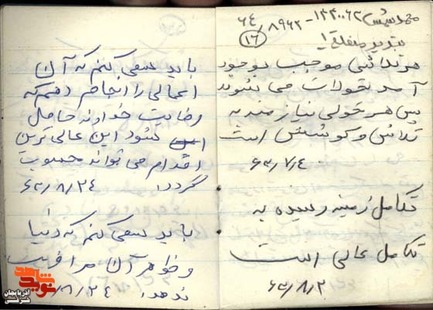 ۱۳۳۰۰۶۲ - ۸۹۶۲/۶۴
(۱۶)
هر تلاشی موجب بوجود
آمدن تحولات می شوند
پس هر تحولی نیازمند به
تلاش و کوشش است
۶۳/۷/۴
تکامل زمینه رسیده به
تکامل عالی است
۶۳/۸/۲
باید سعی کنم که آن
اعمالی را انجام دهم که
رضایت خداوند حاصل
شود این عالی ترین
اقدام می تواند محسوب
گردد. ۶۳/۸/۲۴
باید سعی کنم که دنیا
و ظواهر آن مرا فریب
ندهد. ۸/۲۴